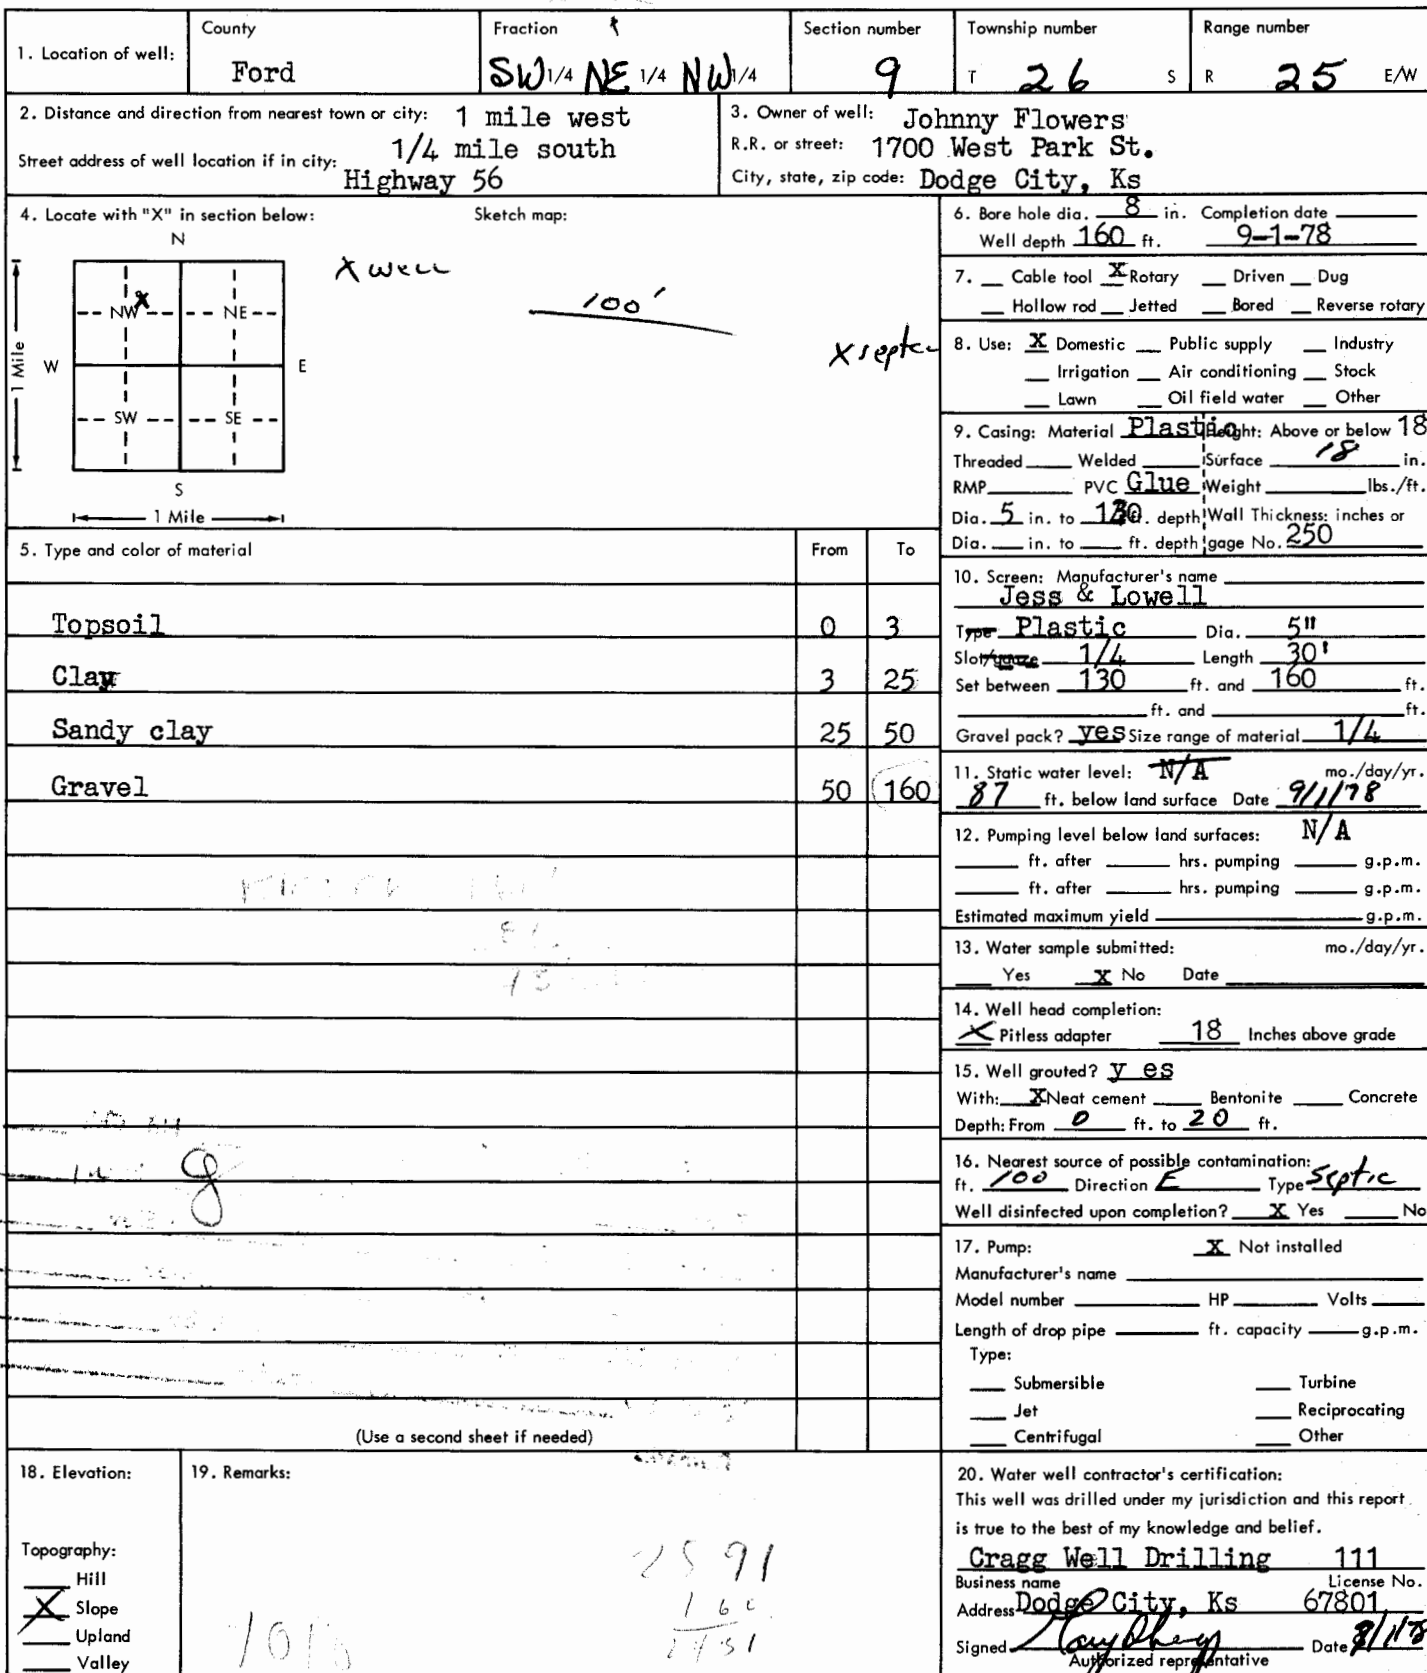 1. Location of well:
County
Ford
Fraction
SW 1/4 NE 1/4 NW 1/4
Section number
9
Township number
T 26 S
Range number
R 25 E/W
2. Distance and direction from nearest town or city: 1 mile west
1/4 mile south
Street address of well location if in city:
Highway 56
3. Owner of well: Johnny Flowers
R.R. or street: 1700 West Park St.
City, state, zip code: Dodge City, Ks
4. Locate with "X" in section below:
Sketch map:
N
X well
100'
X septic
NW X NE
W E
1 Mile
SW SE
S
1 Mile
5. Type and color of material From To
Topsoil 0 3
Clay 3 25
Sandy clay 25 50
Gravel 50 160
(Use a second sheet if needed)
6. Bore hole dia. 8 in. Completion date
Well depth 160 ft. 9-1-78
7. Cable tool X Rotary Driven Dug
Hollow rod Jetted Bored Reverse rotary
8. Use: X Domestic Public supply Industry
Irrigation Air conditioning Stock
Lawn Oil field water Other
9. Casing: Material Plastic Height: Above or below 18
Threaded Welded Surface 18 in.
RMP PVC Glue Weight lbs./ft.
Dia. 5 in. to 130 ft. depth Wall Thickness: inches or
Dia. in. to ft. depth gage No. 250
10. Screen: Manufacturer's name
Jess & Lowell
Type Plastic Dia. 5"
Slot/gauze 1/4 Length 30'
Set between 130 ft. and 160 ft.
ft. and ft.
Gravel pack? yes Size range of material 1/4
11. Static water level: N/A mo./day/yr.
87 ft. below land surface Date 9/1/78
12. Pumping level below land surfaces: N/A
ft. after hrs. pumping g.p.m.
ft. after hrs. pumping g.p.m.
Estimated maximum yield g.p.m.
13. Water sample submitted: mo./day/yr.
Yes X No Date
14. Well head completion:
X Pitless adapter 18 Inches above grade
15. Well grouted? y es
With: X Neat cement Bentonite Concrete
Depth: From 0 ft. to 20 ft.
16. Nearest source of possible contamination:
ft. 100 Direction E Type Septic
Well disinfected upon completion? X Yes No
17. Pump: X Not installed
Manufacturer's name
Model number HP Volts
Length of drop pipe ft. capacity g.p.m.
Type:
Submersible Turbine
Jet Reciprocating
Centrifugal Other
18. Elevation:
Topography:
Hill
X Slope
Upland
Valley
19. Remarks:
2591
160
2431
20. Water well contractor's certification:
This well was drilled under my jurisdiction and this report
is true to the best of my knowledge and belief.
Cragg Well Drilling 111
Business name License No.
Address Dodge City, Ks 67801
Signed Date
Authorized representative